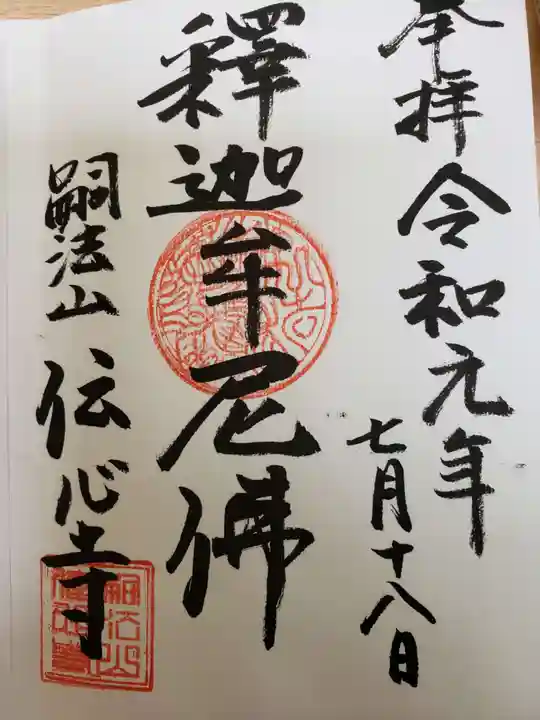 奉拝令和元年
七月十八日
釋迦牟尼佛
嗣法山伝心寺